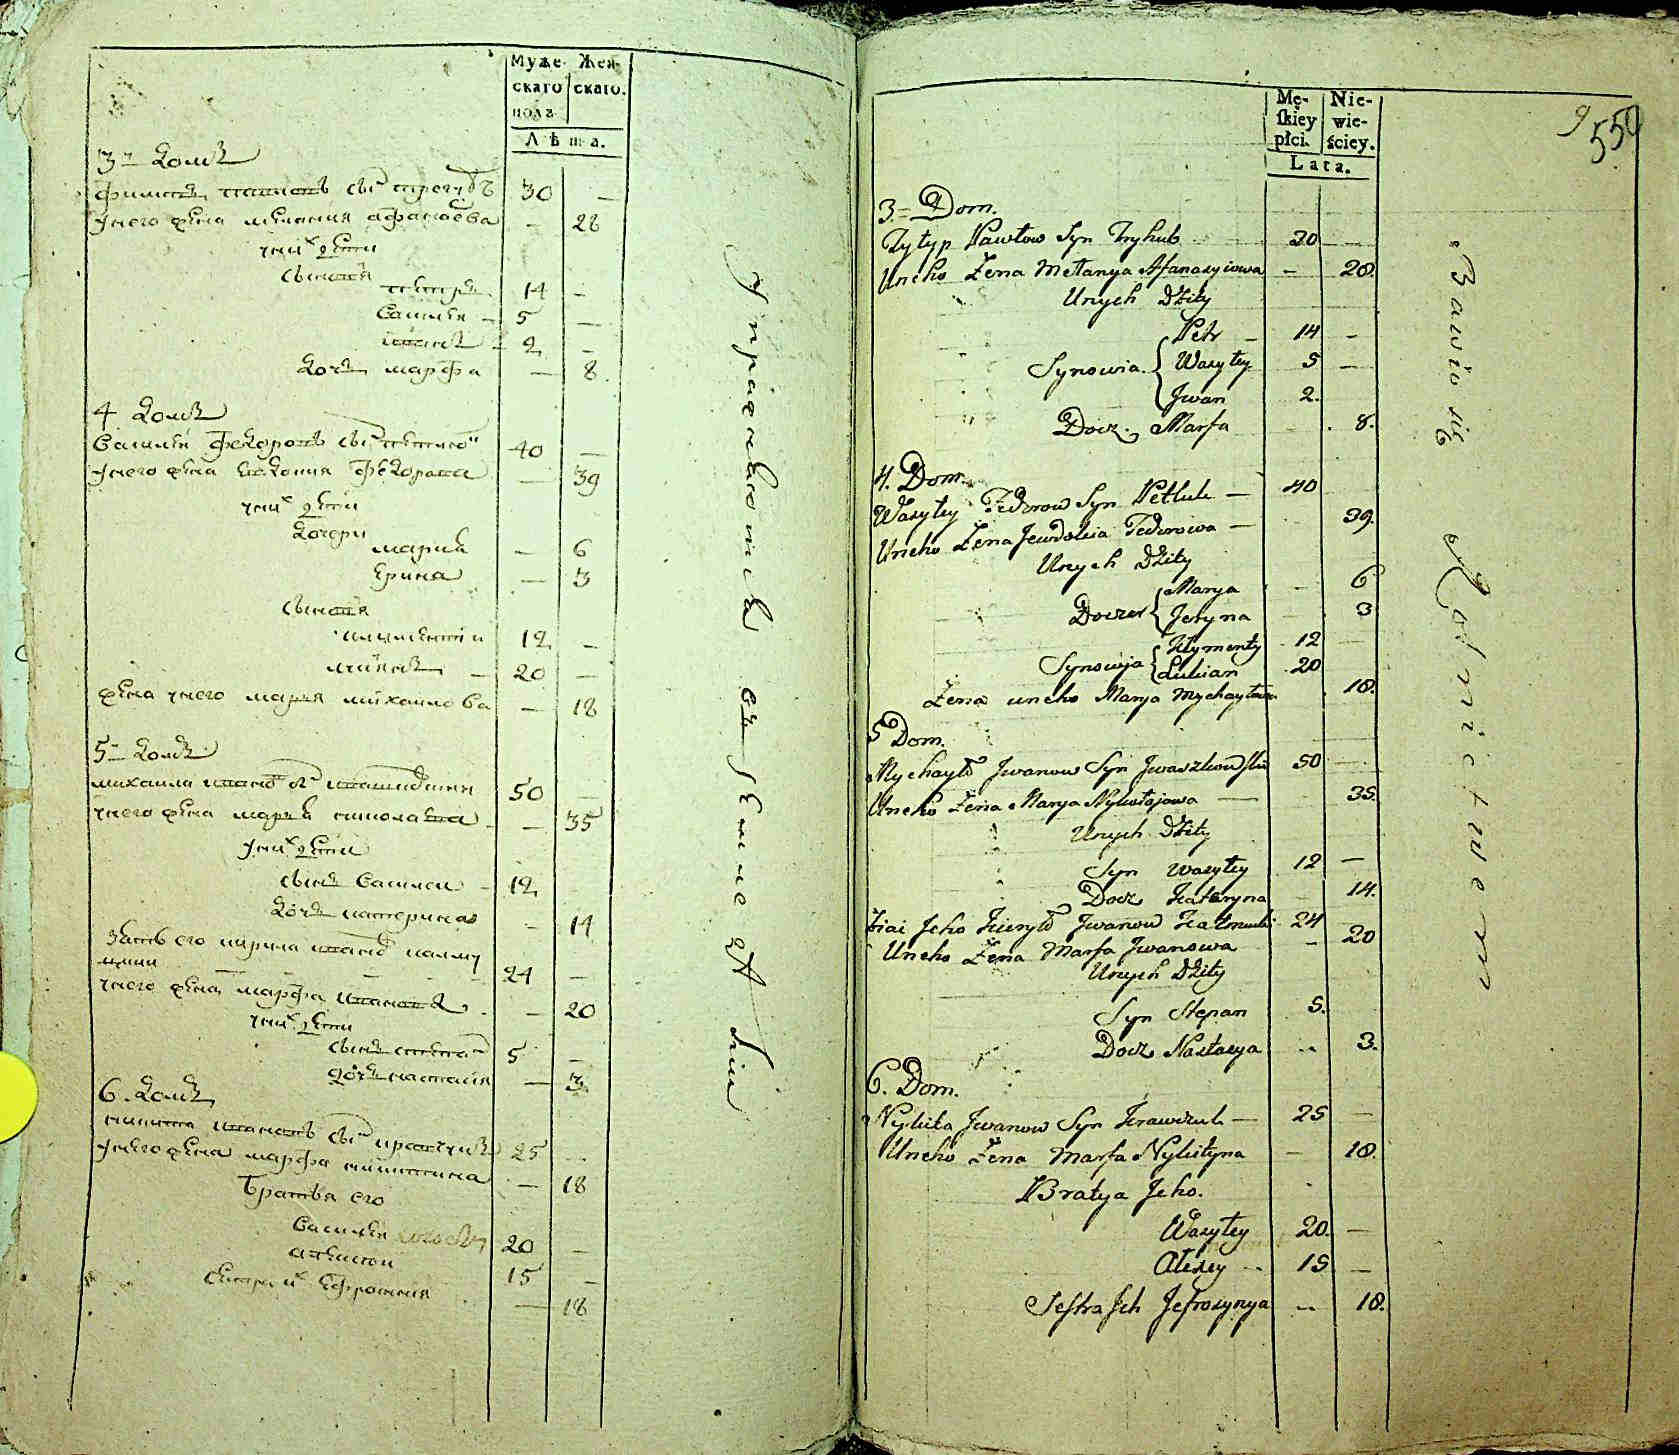 Муже-
скаго
полꙋ
Жен-
скаго.
Лѣта.
3й домъ
30 —
унего жена мелания афанасѣева — 28
уних дети
сыновя
петръ 14 —
василеи — 5 —
иванъ 2 —
дочь марфа — 8
4 домъ
василеи федоровъ сынъ 40 —
унего жена евдокия федорова — 39
уних дети
дочери
мария — 6
ерина — 3
сыновя
климентии 12 —
20 —
жена унего маря михаилова — 18
5й домъ
михаила ивановъ сынъ 50 —
унего жена маря николаева — 35
уних дети
сынъ василеи 12
дочь катерина — 14
зять его кирила ивановъ калму
24 —
унего жена марфа иванова — 20
уних дети
сынъ степан 5 —
дочь настасия — 3
6. домъ
никита ивановъ сынъ кравчукъ 25
унего жена марфа никитина — 18
братья его
василеи 20 —
алексеи 15 —
сестра их ефросиния — 18
упражняютца въ земледѣлии
Mę-
skiey
płci.
Nie-
wie-
ściey.
Lata.
9
559
3. Dom.
Fylyp Pawłow Syn Tryhub 30 —
Uneho Żena Mełanya Afanasyiowa — 28.
Unych Dżity
Petr — 14 —
Synowia { Wasyley 5 —
Jwan 2.
Docz. Marfa 8.
4. Dom.
Wasyley Fedorow Syn Petluk — 40
Uneho Żena Jewdokia Fedorowa — 39.
Unych Dżity
Marya — 6
Doczer { Jeryna 3
Kłymenty 12 —
Synowja { Lukian 20
Żena uneho Marya Mychayłowa 18.
5 Dom.
Mychayło Jwanow Syn Jwaszkowski 50 —
Uneho Żena Marya Nykołajowa — 35.
Unych Dżity
Syn Wasyley 12 —
Docz Kateryna 14.
Ziat Jeho Kiryło Jwanow Kałmuk 24
Uneho Żena Marfa Jwanowa — 20
Unych Dżity
Syn Stepan 5.
Docz Nastasya 3.
6. Dom.
Nykita Jwanow Syn Krawczuk — 25 —
Uneho Żena Marfa Nykityna — 18.
Bratya Jeho.
Wasyley 20. —
Alexey 15 —
Sestra Jch Jefrosynya 18.
Bawio się Rolnictwem